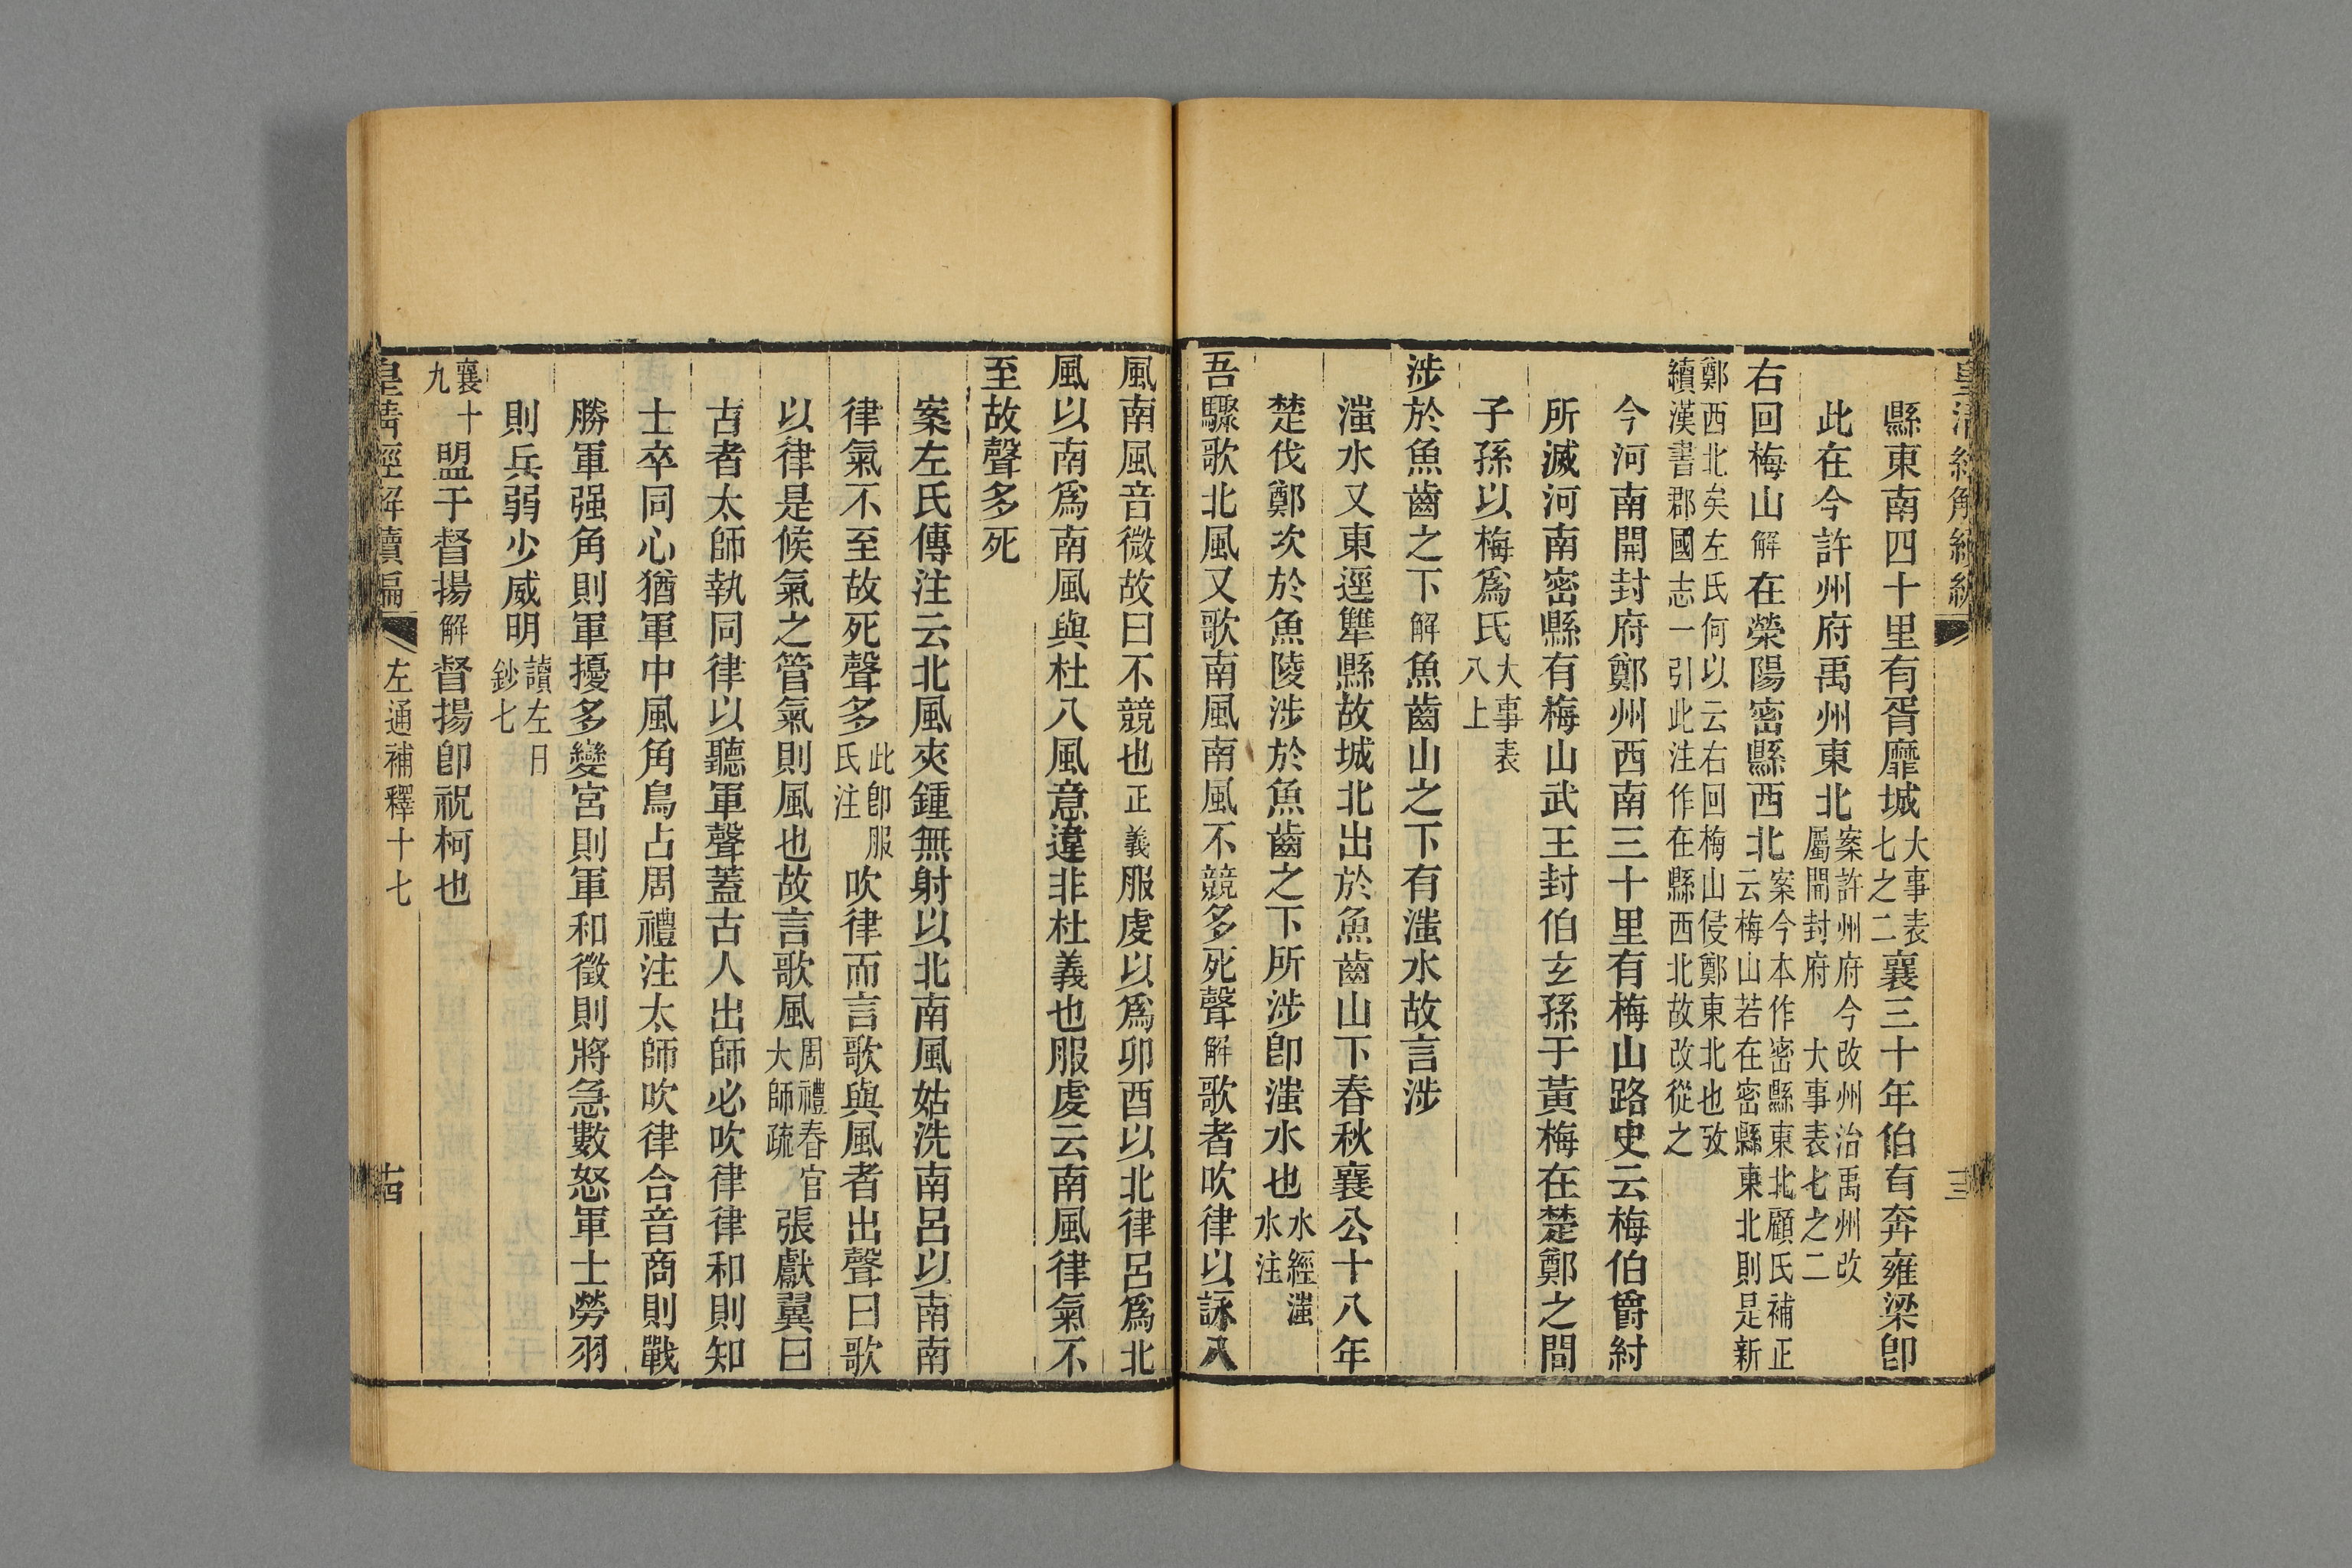 皇清經解續編
縣東南四十里有胥靡城大事表七之二襄三十年伯有奔雍梁卽
此在今許州府禹州東北案許州府今改州治禹州改屬開封府 大事表七之二
右回梅山解在滎陽密縣西北案今本作密縣東北顧氏補正云梅山若在密縣東北則是新
鄭西北矣左氏何以云右回梅山侵鄭東北也攷續漢書郡國志一引此注作在縣西北故改從之
今河南開封府鄭州西南三十里有梅山路史云梅伯爵紂
所滅河南密縣有梅山武王封伯玄孫于黃梅在楚鄭之間
子孫以梅爲氏大事表八上
涉於魚齒之下解魚齒山之下有滍水故言涉
滍水又東逕犨縣故城北出於魚齒山下春秋襄公十八年
楚伐鄭次於魚陵涉於魚齒之下所涉卽滍水也水經滍水注
吾驟歌北風又歌南風南風不競多死聲解歌者吹律以詠八
風南風音微故曰不競也正義服虔以爲卯酉以北律呂爲北
風以南爲南風與杜八風意違非杜義也服虔云南風律氣不
至故聲多死
案左氏傳注云北風夾鍾無射以北南風姑洗南呂以南南
律氣不至故死聲多此卽服氏注吹律而言歌與風者出聲曰歌
以律是候氣之管氣則風也故言歌風周禮春官大師疏張獻翼曰
古者太師執同律以聽軍聲蓋古人出師必吹律律和則知
士卒同心猶軍中風角鳥占周禮注太師吹律合音商則戰
勝軍强角則軍擾多變宮則軍和徵則將急數怒軍士勞羽
則兵弱少威明讀左日鈔七
襄十九盟于督揚解督揚卽祝柯也
皇清經解續編 左通補釋十七 十四